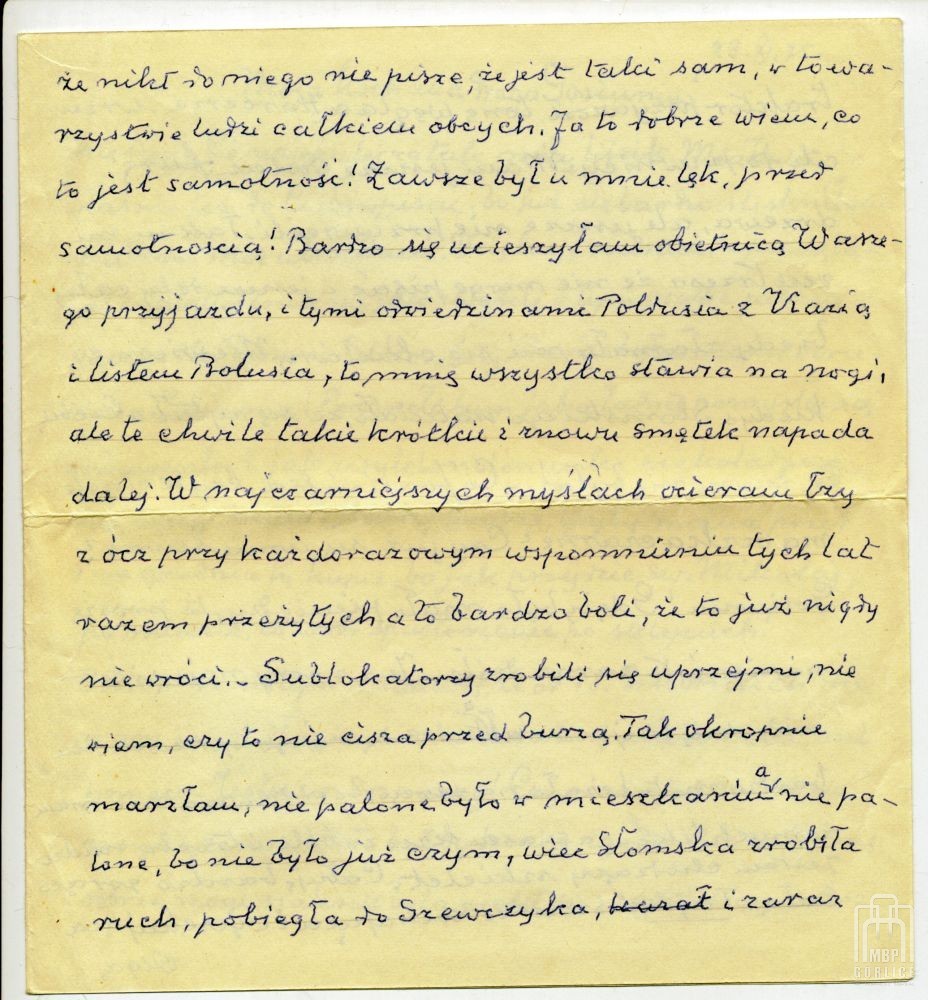 że nikt do niego nie pisze, że jest taki sam, w towa-
rzystwie ludzi całkiem obcych. Ja to dobrze wiem, co
to jest samotność! Zawsze był u mnie lęk, przed
samotnoscią! Bardzo się ucieszyłam obietnicą Wasze-
go przyjazdu, i tymi odwiedzinami Poldusia z Kazią
i listem Bolusia, to mnię wszystko stawia na nogi,
ale te chwile takie krótkie i znowu smętek napada
dalej. W najczarniejszych myślach ocieram łzy
z ócz przy każdorazowym wspomnieniu tych lat
razem przeżytych a to bardzo boli, że to już nigdy
nie wróci.. Sublokatorzy zrobili się uprzejmi, nie
wiem, czy to nie cisza przed burzą. Tak okropnie
marzłam, nie palone było w mieszkaniu a nie pa-
lone, bo nie było już czym, wiec Słomska zrobiła
ruch, pobiegła do Szewczyka, kazał i zaraz
MBP
GORLICE